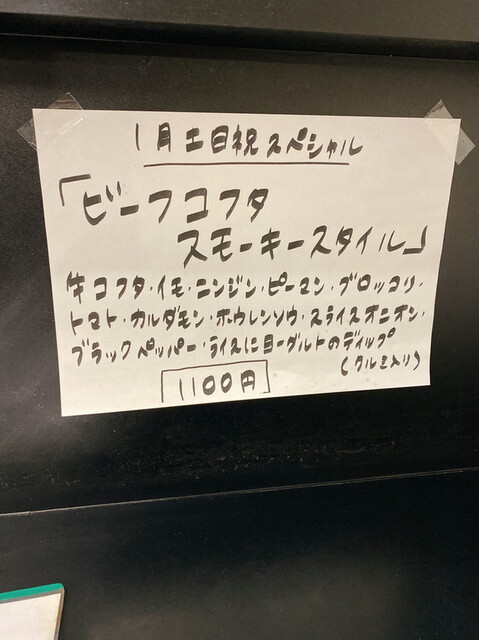 1月土日祝スペシャル
「ビーフコフタ
スモーキースタイル」
牛コフタ・イモ・ニンジン・ピーマン・ブロッコリ・
トマト・カルダモン・ホウレンソウ・スライスオニオン・
ブラックペッパー・ライスにヨーグルトのディップ
(クルミ入り)
1100円